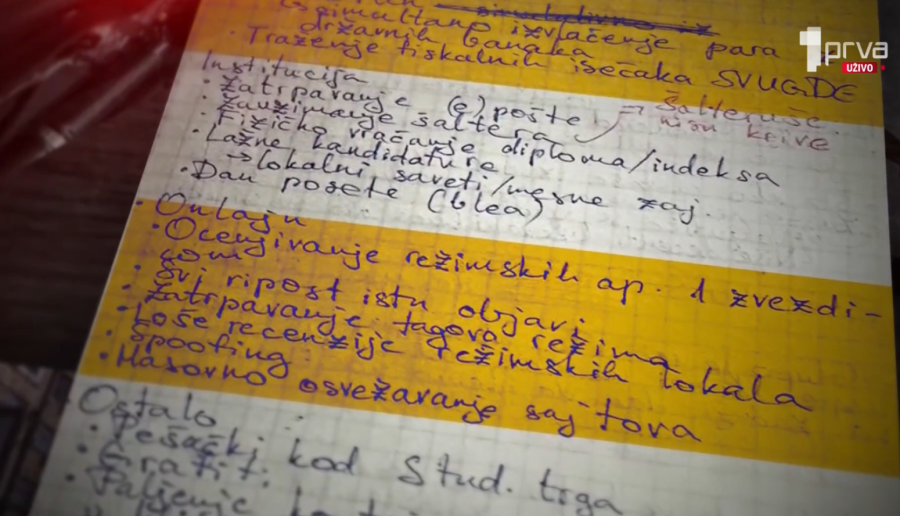 prva
UŽIVO
simultano izvlačenje para iz
državnih banaka
• Traženje fiskalnih isečaka SVUGDE
Institucija
• Zatrpavanje (e)pošte
• Zauzimanje šaltera → Šalteruše
nisu krive
• Fizičko vraćanje diploma/indeksa
• Lažne kandidature
→ lokalni saveti/mesne zaj.
• Dan posete (blea)
• Onlajn
• Ocenjivanje režimskih ap. 1 zvezdi-
com
• Svi ripost istu objavu
• Zatrpavanje tagova režima
• Loše recenzije režimskih lokala
• Spoofing
• Masovno osvežavanje sajtova
Ostalo
• Pešački kod Stud. trga
• Grafit.
• Paljenje